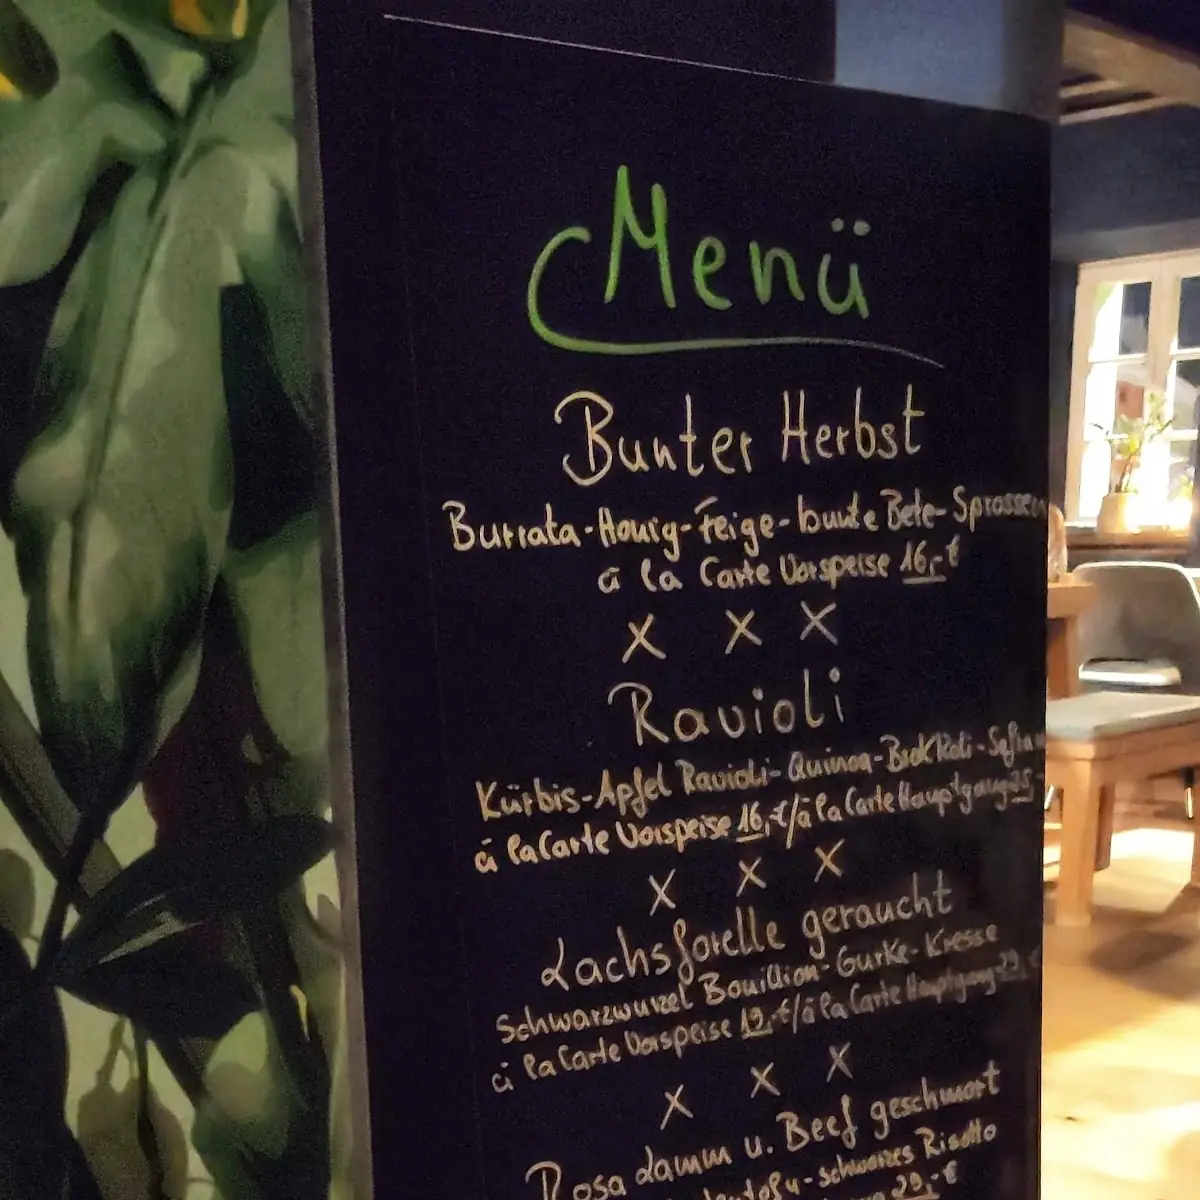 Menü
Bunter Herbst
Burrata-Honig-Feige-bunte Bete-Sprossen
à la Carte Vorspeise 16,-€
x x x
Ravioli
Kürbis-Apfel Ravioli-Quinoa-Brokkoli-
à la Carte Vorspeise 16,-€/à la Carte Hauptgang 25
x x x
Lachsforelle geraucht
Schwarzwurzel Bouillion-Gurke-Kresse
à la Carte Vorspeise 19,-€/à la Carte Hauptgang
x x x
Rosa Lamm u. Beef geschmort
-schwarzes Risotto
29,-€